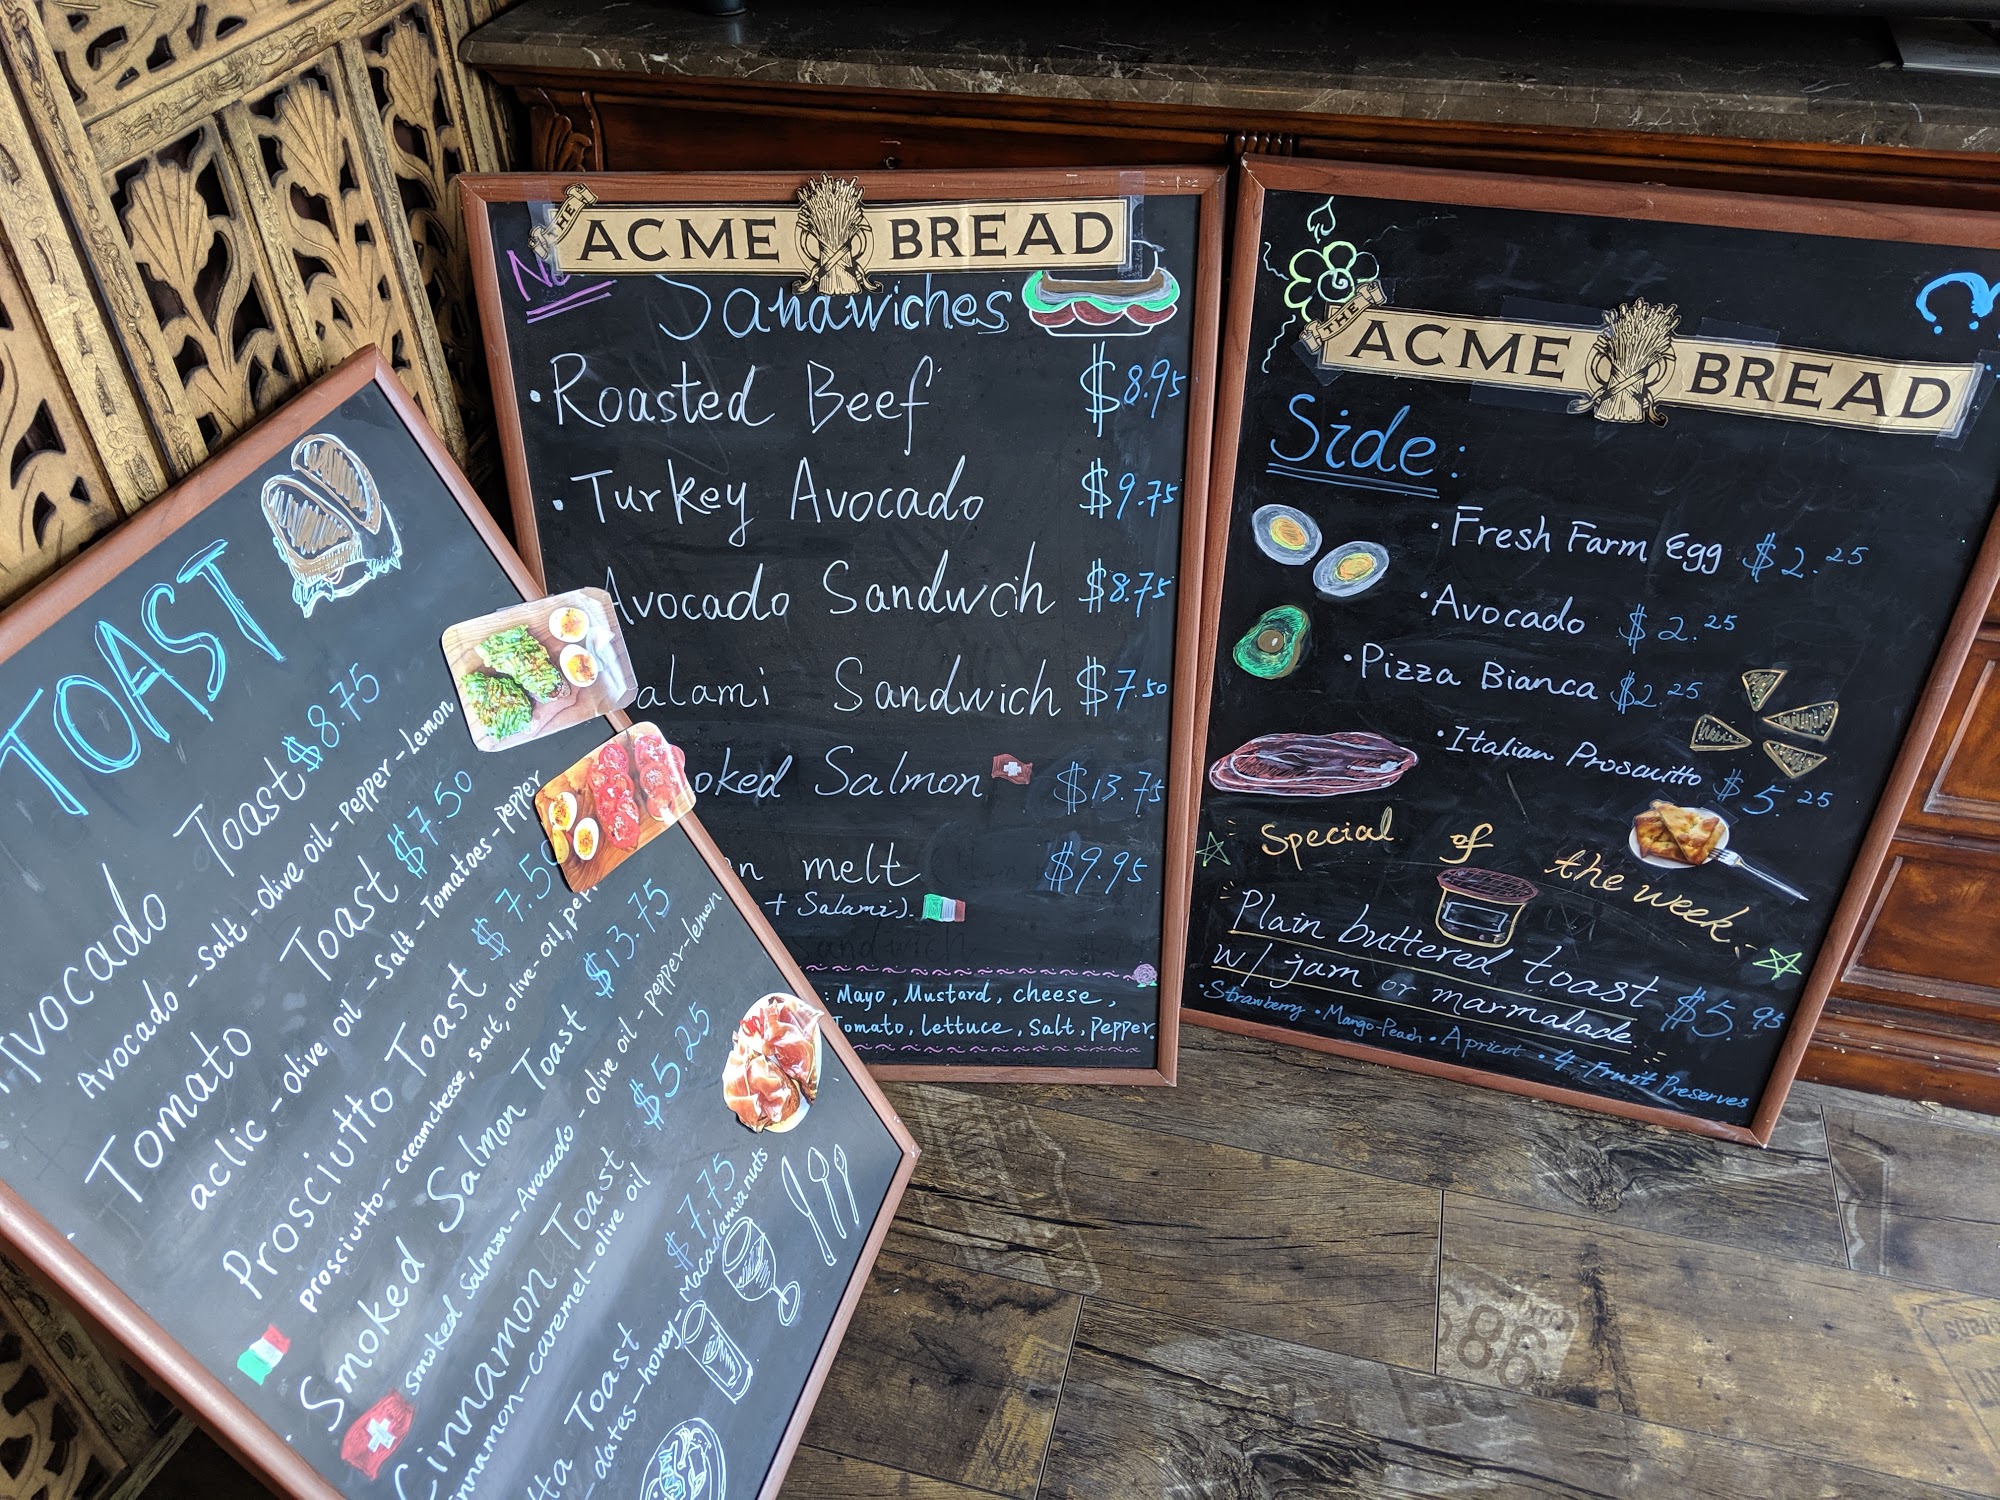 TOAST
Avocado Toast $8.75
Avocado - salt - olive oil - pepper - Lemon
Tomato Toast $7.50
aclic - olive oil - salt - Tomatoes - pepper
Prosciutto Toast $7.50
prosciutto - creamcheese, salt, olive-oil, pe
Smoked Salmon Toast $13.75
smoked salmon - Avocado - olive oil - pepper-lemon
Cinnamon Toast $5.25
innamon-caremel-olive oil
tta Toast $7.75
- dates - honey - Macadamia nuts
THE ACME BREAD
Sandwiches
· Roasted Beef $8.95
· Turkey Avocado $9.75
Avocado Sandwcih $8.75
alami Sandwich $7.50
oked Salmon $13.75
n melt $9.95
+ Salami).
: Mayo, Mustard, cheese,
Tomato, lettuce, salt, pepper.
THE ACME BREAD
Side:
· Fresh Farm Egg $2.25
· Avocado $2.25
· Pizza Bianca $2.25
· Italian Proscuitto $5.25
Special of the week
Plain buttered toast
w/ jam or marmalade $5.95
· Strawberry · Mango-Peach · Apricot · 4-Fruit Preserves